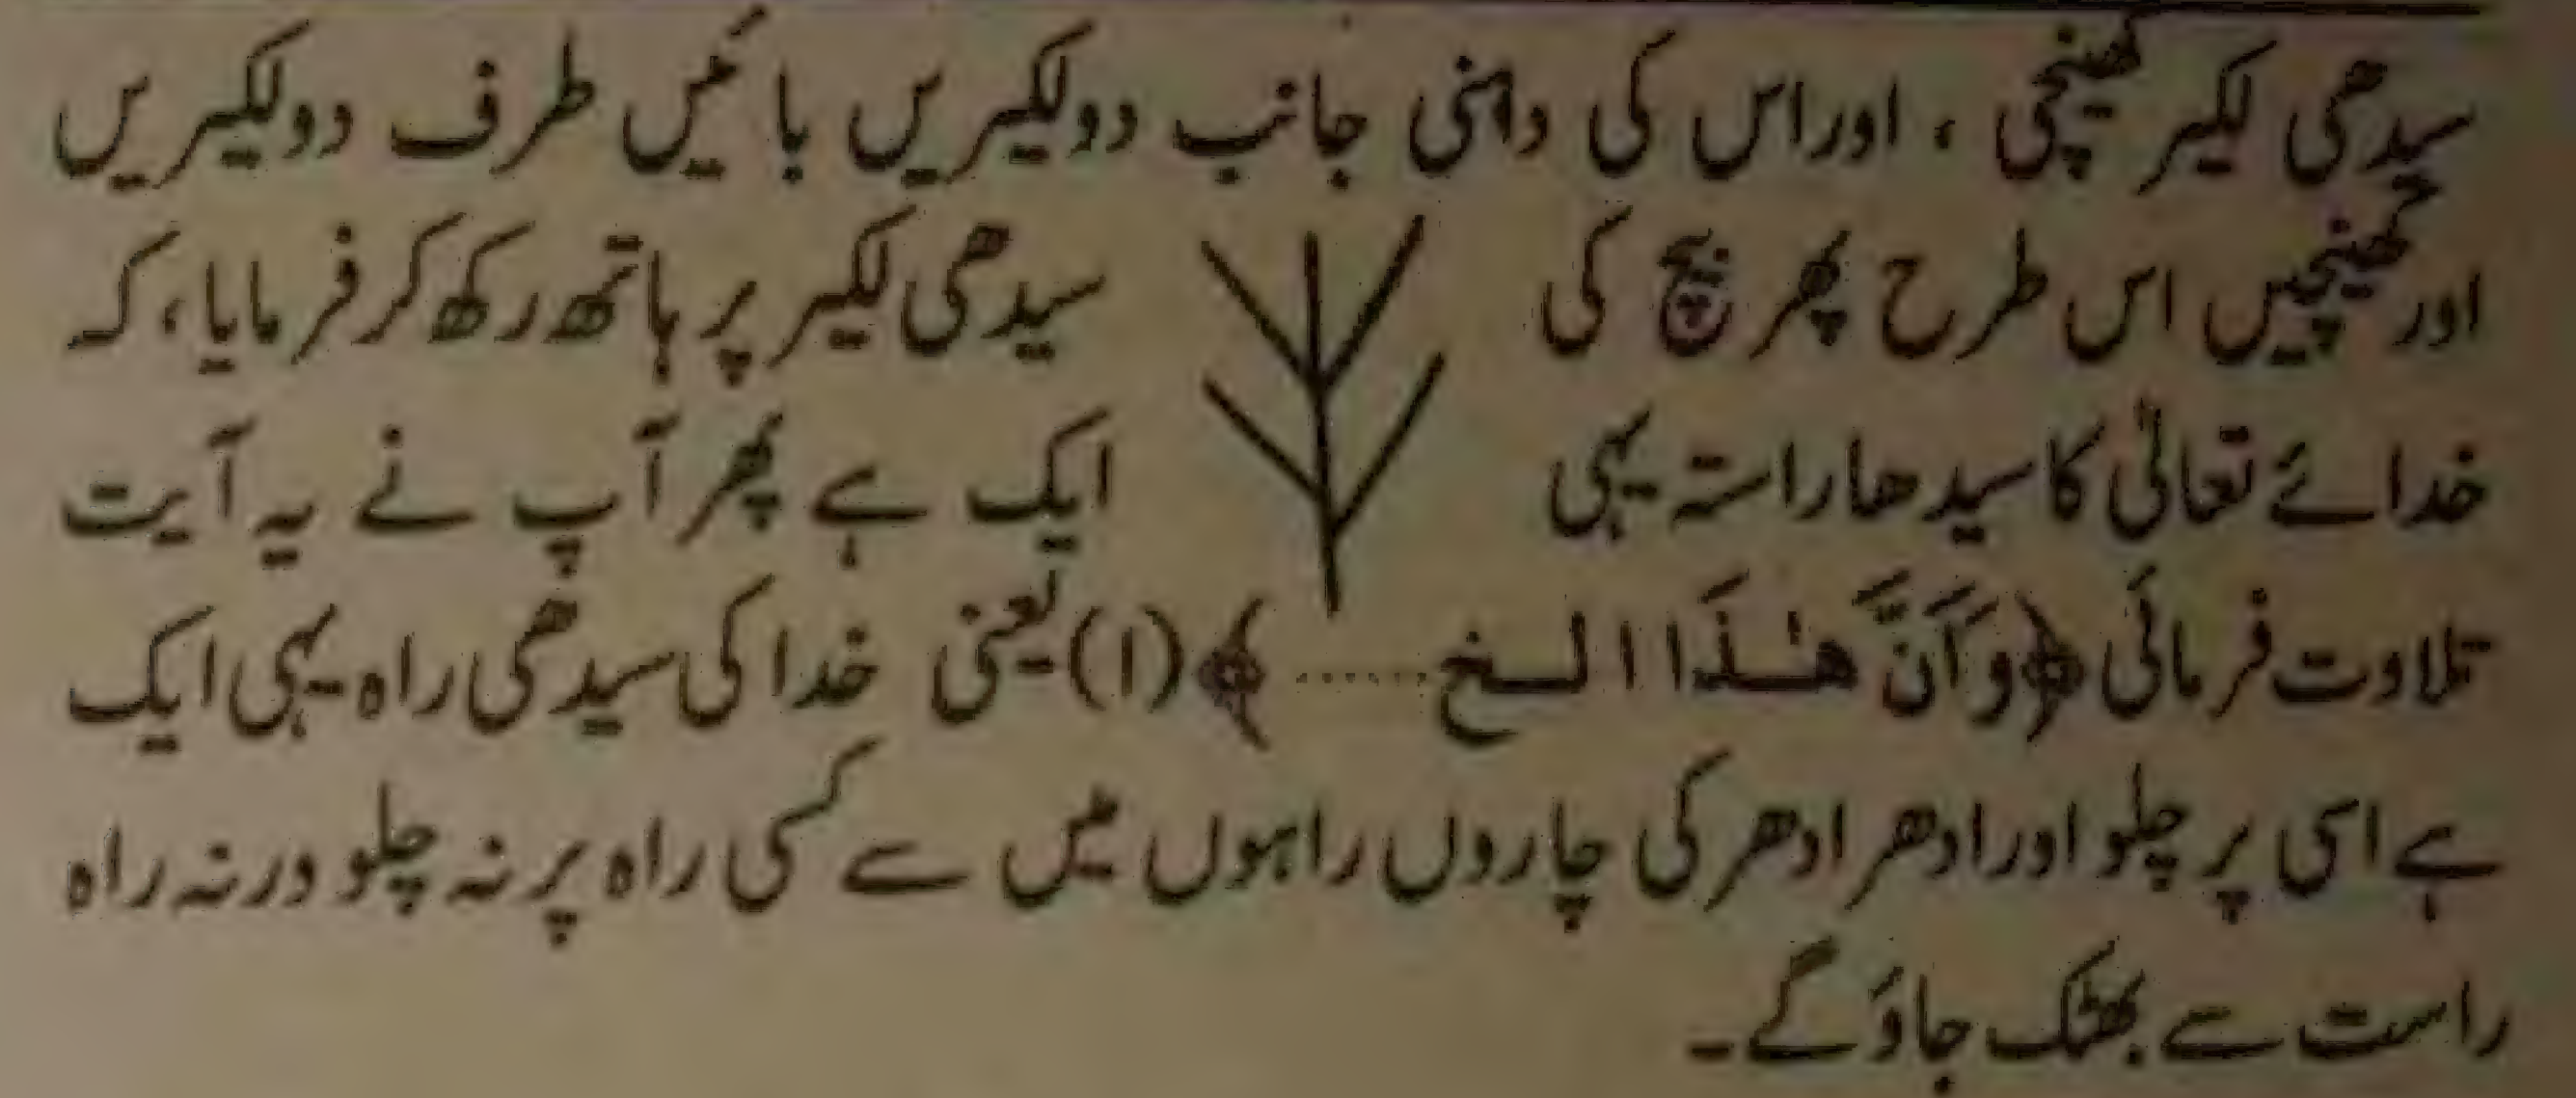 سیدھی لکیر کھینچی ، اور اس کی داہنی جانب دو لکیریں بائیں طرف دو لکیریں
اور کھینچیں اس طرح پھر بیچ کی سیدھی لکیر پر ہاتھ رکھ کر فرمایا، کہ
خدائے تعالٰی کا سیدھا راستہ یہی ایک ہے پھر آپ نے یہ آیت
تلاوت فرمائی ﴿وَأَنَّ هٰـذَا الـخ ......﴾(۱) یعنی خدا کی سیدھی راہ یہی ایک
ہے اسی پر چلو اور ادھر ادھر کی چاروں راہوں میں سے کسی راہ پر نہ چلو ورنہ راہ
راست سے بھٹک جاؤ گے۔